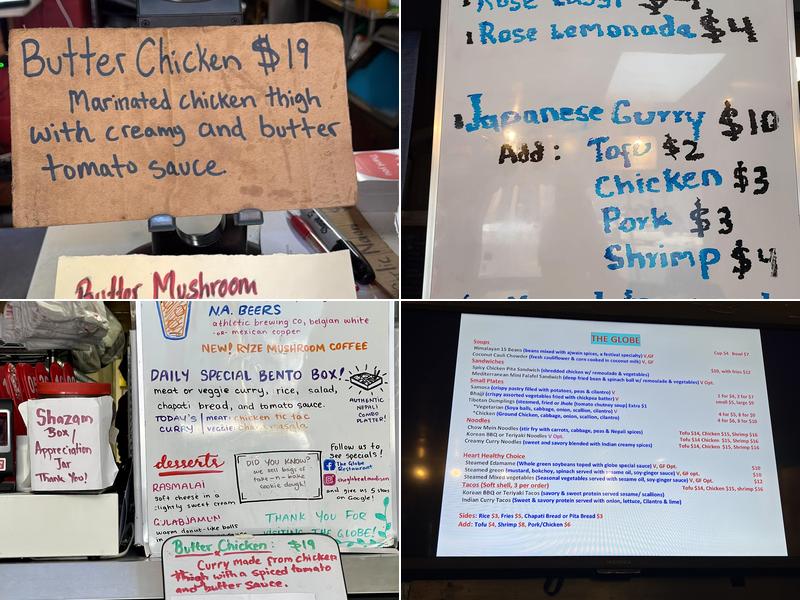 Butter Chicken $19
Marinated chicken thigh
with creamy and butter
tomato sauce.
Butter Mushroom
Rose Lassi $4
Rose Lemonade $4
Japanese Curry $10
Add: Tofu $2
Chicken $3
Pork $3
Shrimp $4
N.A. BEERS
athletic brewing co, belgian white
-OR- mexican copper
NEW! RYZE MUSHROOM COFFEE
DAILY SPECIAL BENTO BOX!
meat or veggie curry, rice, salad,
chapati bread, and tomato sauce.
TODAY'S meat: chicken tic tac
CURRY veggie: chana masala
AUTHENTIC
NEPALI
COMBO
PLATTER!
desserts
RASMALAI
soft cheese in a
lightly sweet cream
GULABJAMUN
warm donut-like balls
DID YOU KNOW?
we sell bags of
take-n-bake
cookie dough!
Follow us to
see specials!
The Globe
Restaurant
and give us 5 stars
on Google!
THANK YOU FOR
VISITING THE GLOBE!
Shazam
Box/
Appreciation
Jar
Thank You!
Butter Chicken: $19
Curry made from chicken
thigh with a spiced tomato
and butter sauce.
THE GLOBE
Soups
Himalayan 15 Beans (beans mixed with ajwain spices, a festival specialty) V,GF
Coconut Cauli Chowder (fresh cauliflower & corn cooked in coconut milk) V, GF Cup $4 Bowl $7
Sandwiches
Spicy Chicken Pita Sandwich (shredded chicken w/ remoulade & vegetables)
Mediterranean Mini Falafel Sandwich (deep fried bean & spinach ball w/ remoulade & vegetables) V Opt. $10, with fries $12
Small Plates
Samosa (crispy pastry filled with potatoes, peas & cilantro) V 1 for $4, 2 for $7
Bhajji (crispy assorted vegetables fried with chickpea batter) V small $5, large $9
Tibetan Dumplings (steamed, fried or Jhole (tomato chutney soup) Extra $1
*Vegetarian (Soya balls, cabbage, onion, scallion, cilantro) V 4 for $5, 8 for $9
*Chicken (Ground Chicken, cabbage, onion, scallion, cilantro) 4 for $6, 8 for $10
Noodles
Chow Mein Noodles (stir fry with carrots, cabbage, peas & Nepali spices) Tofu $14, Chicken $15, Shrimp $16
Korean BBQ or Teriyaki Noodles V Opt. Tofu $14, Chicken $15, Shrimp $16
Creamy Curry Noodles (Sweet and savory blended with Indian creamy spices) Tofu $14, Chicken $15, Shrimp $16
Heart Healthy Choice
Steamed Edamame (Whole green soybeans toped with globe special sauce) V, GF Opt. $10
Steamed green (mustard, bokchoy, spinach served with sesame oil, soy-ginger sauce) V, GF Opt. $10
Steamed Mixed vegetables (Seasonal vegetables served with sesame oil, soy-ginger sauce) V, GF Opt. $12
Tacos (Soft shell, 3 per order) Tofu $14, Chicken $15, shrimp $16
Korean BBQ or Teriyaki Tacos (savory & sweet protein served w/ sesame/ scallions)
Indian Curry Tacos (Sweet & savory protein served with onion, lettuce, Cilantro & lime)
Sides: Rice $3, Fries $5, Chapati Bread or Pita Bread $3
Add: Tofu $4, Shrimp $8, Pork/Chicken $6